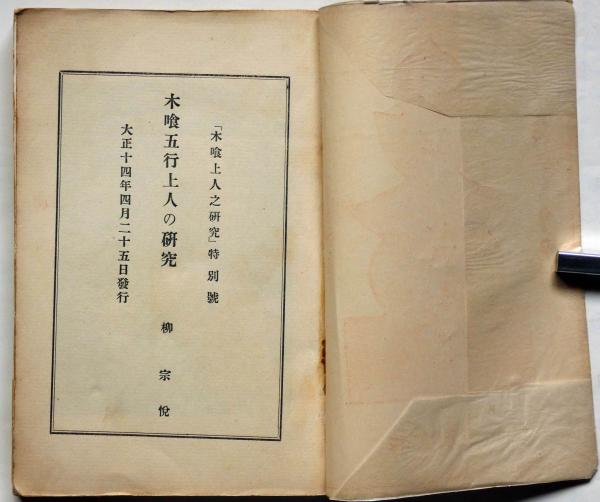 「木喰上人之研究」特別號
木喰五行上人の研究
柳宗悅
大正十四年四月二十五日發行